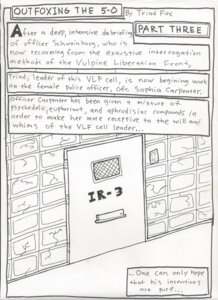 OUTFOXING THE 5-0
By: Triad Fox
PART THREE
After a deep, intensive debriefing
of officer Schweinburg, who is
now recovering from the exaustive interrogation
methods of the Vulpine Liberation Front,
Triad, leader of this VLF cell, is now begining work
on the female police officer, Ofc. Sophia Carpenter.
Officer Carpenter has been given a mixture of
psychedelic, euphoriant, and aphrodisiac compounds in
order to make her more receptive to the will and
whims of the VLF cell leader...
IR-3
...One can only hope
that his intentions
are pure...